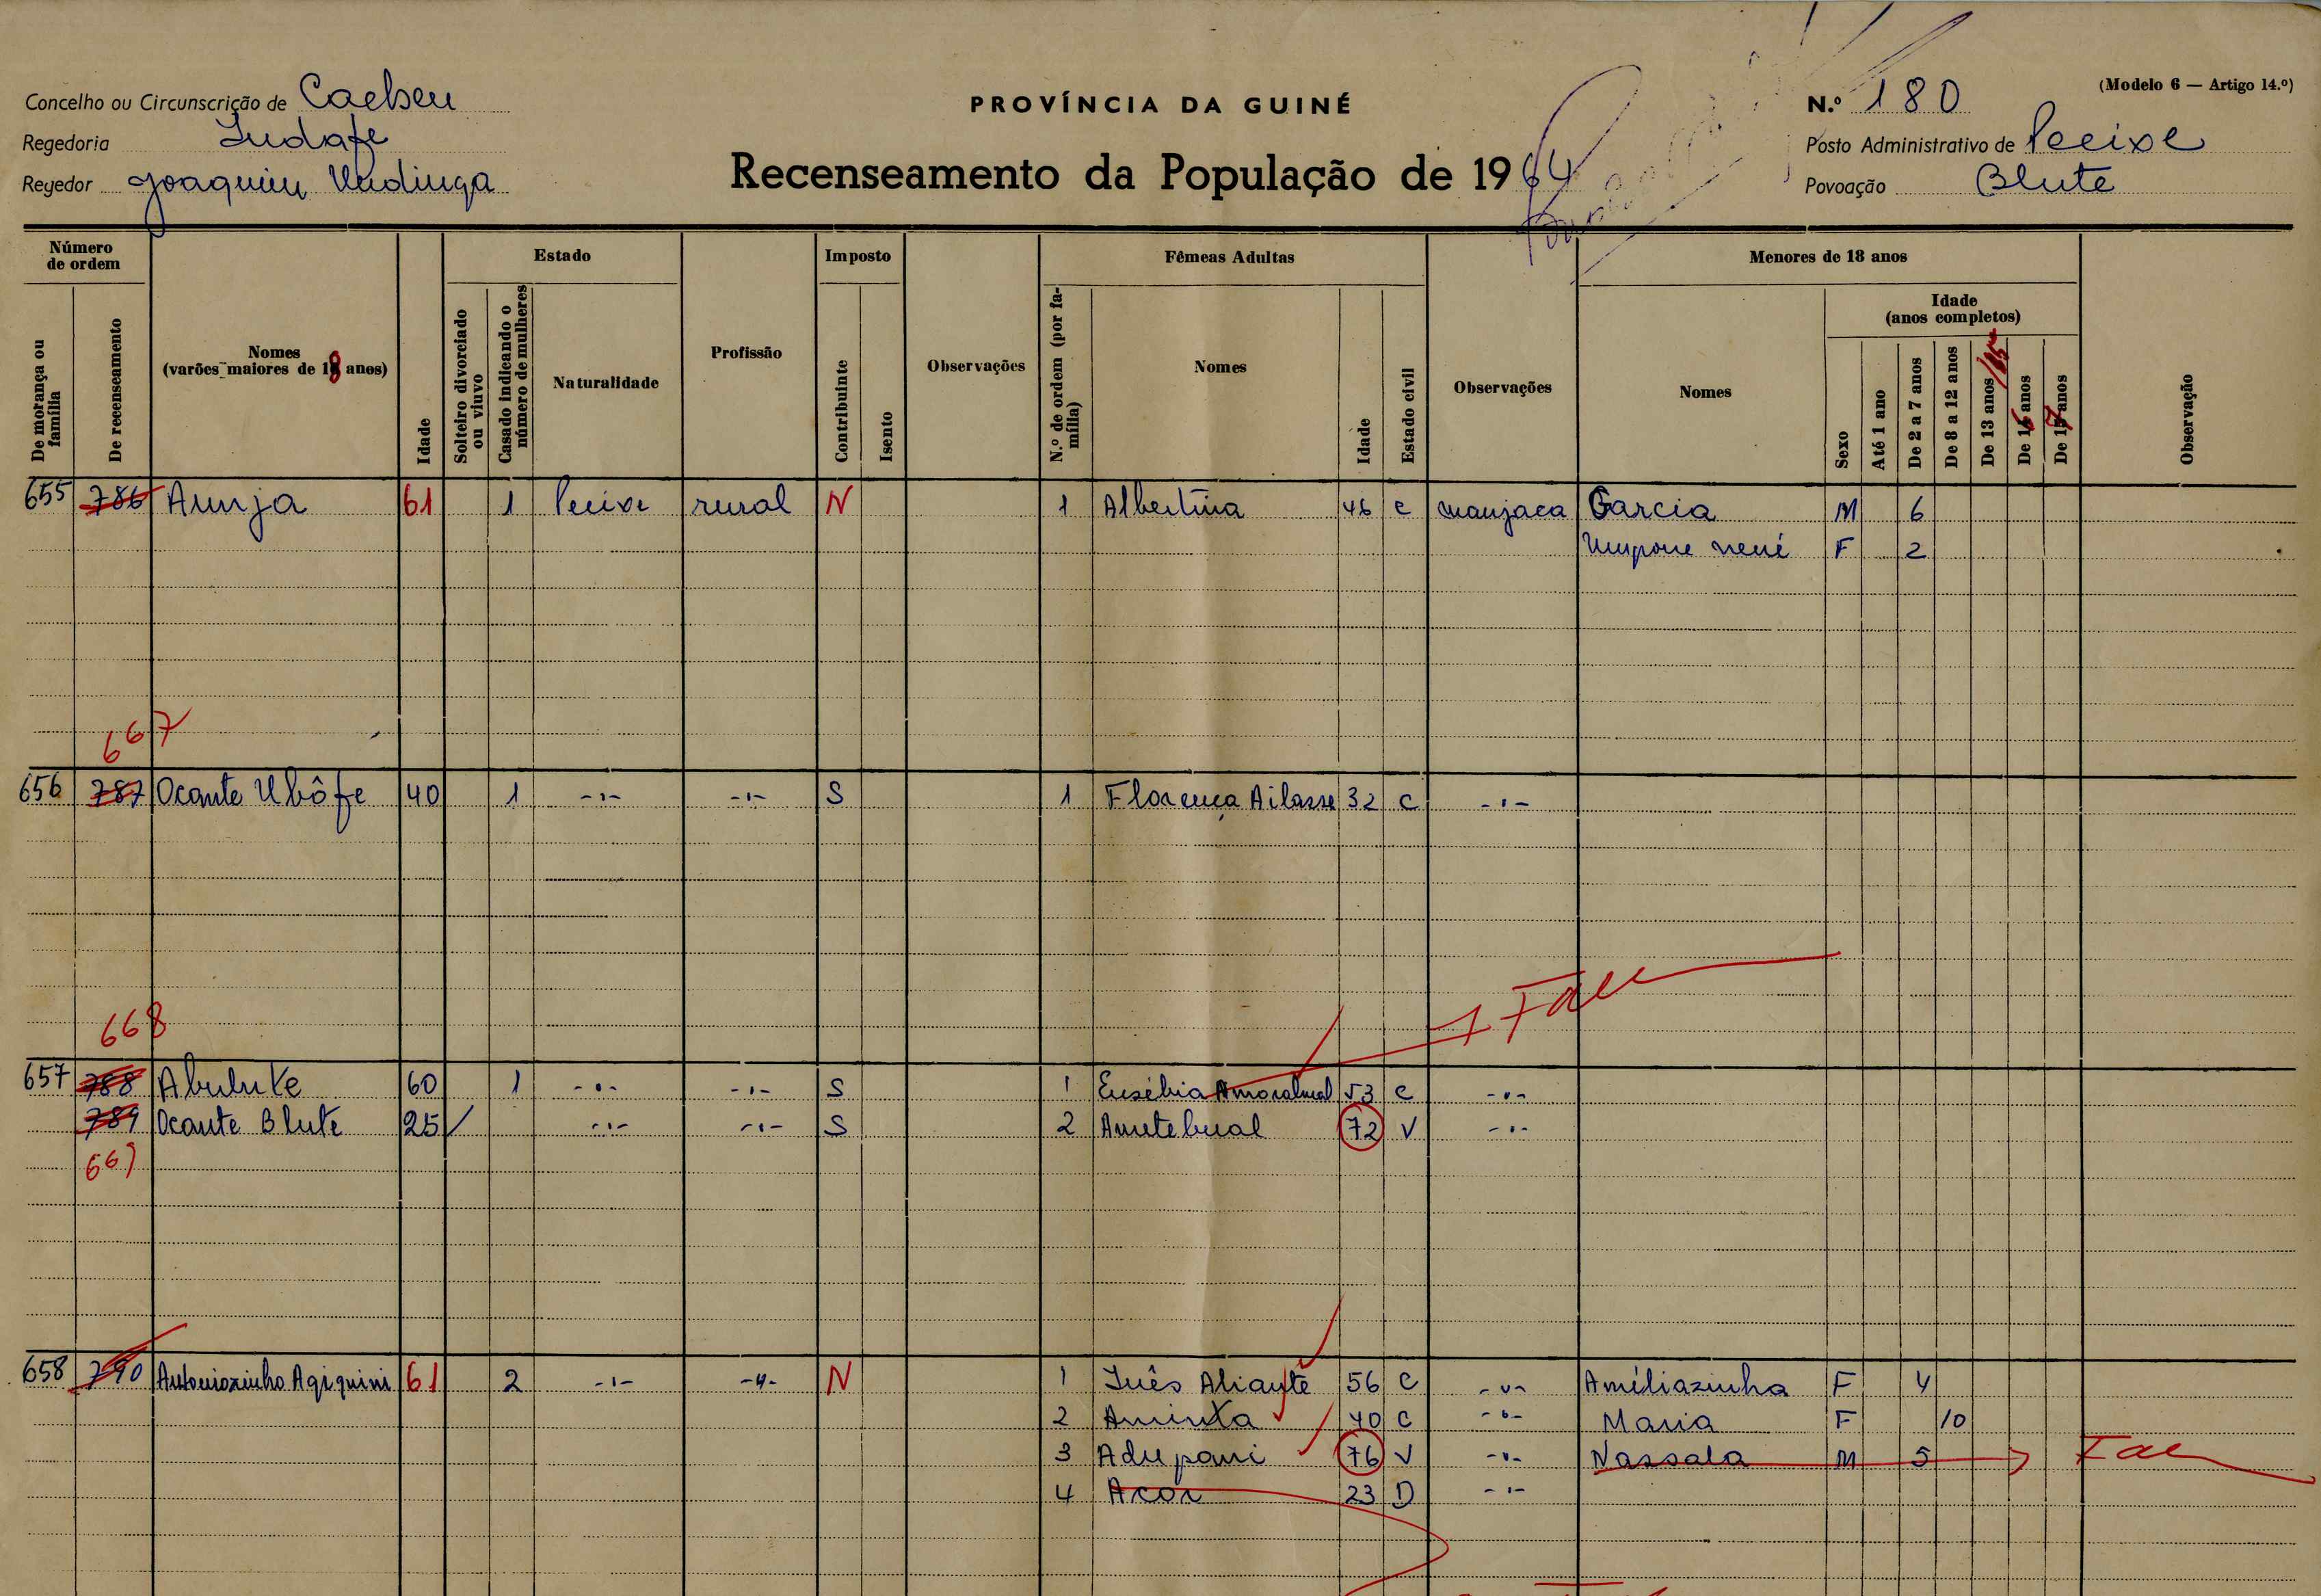 Concelho ou Circunscrição de Cacheu
Regedoria Indafe
Regedor Joaquim Undinga
PROVÍNCIA DA GUINÉ
Recenseamento da População de 1964
(Modelo 6 — Artigo 14.º)
N.º 180
Posto Administrativo de Pecixe
Povoação Blute
Número de ordem
De morança ou família
De recenseamento
Nomes (varões maiores de 18 anos)
Idade
Estado
Solteiro divorciado ou viuvo
Casado indicando o número de mulheres
Naturalidade
Profissão
Imposto
Contribuinte
Isento
Observações
Fêmeas Adultas
N.º de ordem (por família)
Nomes
Idade
Estado civil
Observações
Menores de 18 anos
Nomes
Sexo
Idade (anos completos)
Até 1 ano
De 2 a 7 anos
De 8 a 12 anos
De 13 anos /15
De 16 anos
De 17 anos
Observação
655 786 Aunja 61 1 Pecixe rural N 1 Albertina 46 C manjaca Garcia M 6
Umpone nené F 2
667
656 787 Ocante Ubôfe 40 1 -"- -"- S 1 Florença Ailasse 32 C -"-
668
1 Fal
657 788 Abulute 60 1 -"- -"- S 1 Eusébia 53 C -"-
789 Ocante Blute 25 / -"- -"- S 2 Amtebual 72 V -"-
669
658 790 Antoniozinho Agiquini 61 2 -"- -"- N 1 Inês Aliante 56 C -"- Améliazinha F 4
2 Aminta 40 C -"- Maria F 10
3 Adupani 76 V -"- Nassala M 5 Fal
4 Acor 23 D -"-